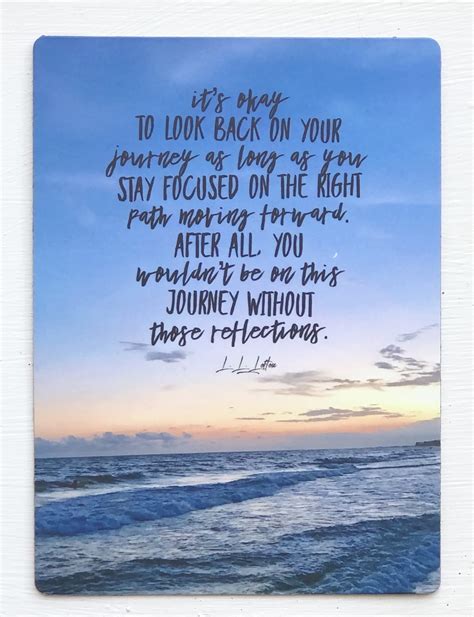 it's okay
TO LOOK BACK ON YOUR
journey as long as you
STAY FOCUSED ON THE RIGHT
path moving forward.
AFTER ALL, YOU
wouldn't be on this
JOURNEY WITHOUT
those reflections.
L. L.